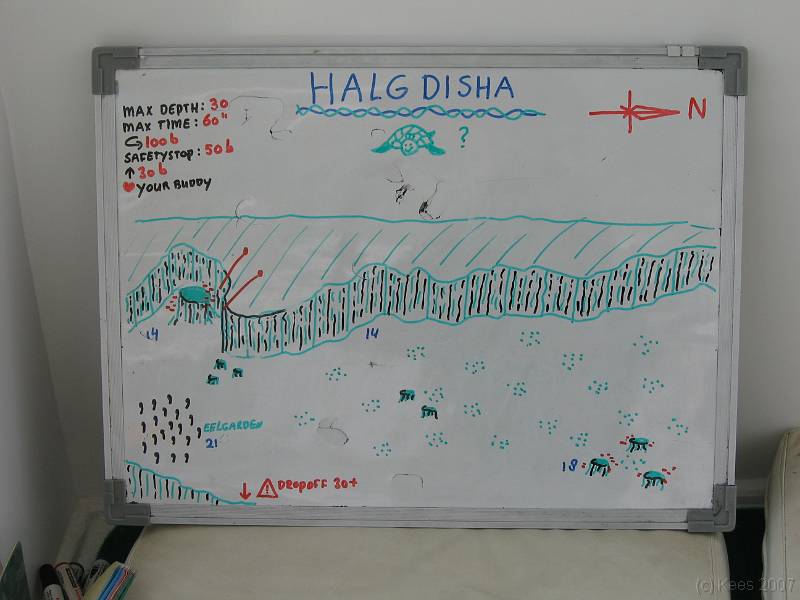 HALG DISHA
MAX DEPTH: 30
MAX TIME: 60"
100b
SAFETYSTOP: 50b
↑ 30b
♥ YOUR BUDDY
?
N
14
14
EELGARDEN
21
18
↓ ⚠ DROPOFF 30+
(c) Kees 2007